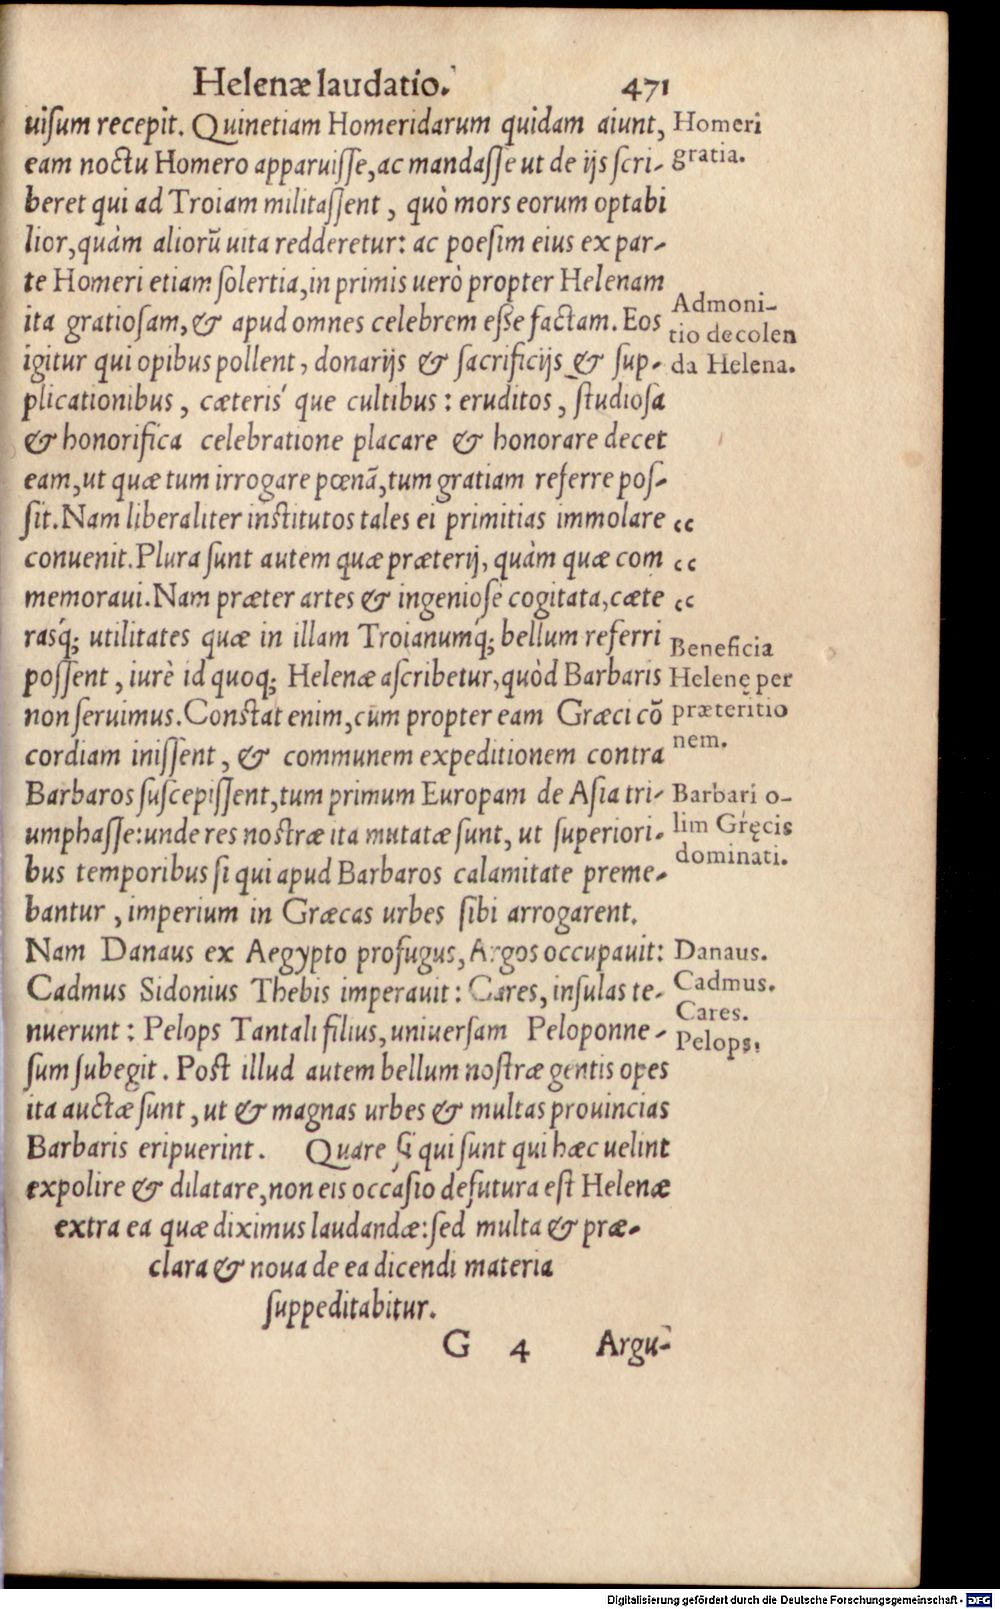 Helenæ laudatio. 471
uiſum recepit. Quinetiam Homeridarum quidam aiunt,
eam noctu Homero apparuiſſe, ac mandaſſe ut de ijs ſcri-
beret qui ad Troiam militaſſent, quò mors eorum optabi
lior, quàm aliorũ uita redderetur: ac poeſim eius ex par-
te Homeri etiam ſolertia, in primis uerò propter Helenam
ita gratioſam, & apud omnes celebrem eſſe factam. Eos
igitur qui opibus pollent, donarijs & ſacrificijs & ſup-
plicationibus, cæteris´que cultibus: eruditos, ſtudioſa
& honorifica celebratione placare & honorare decet
eam, ut quæ tum irrogare pœnã, tum gratiam referre poſ-
ſit. Nam liberaliter inſtitutos tales ei primitias immolare
conuenit. Plura ſunt autem quæ præterij, quàm quæ com
memoraui. Nam præter artes & ingenioſè cogitata, cæte
rasq́; utilitates quæ in illam Troianumq́; bellum referri
poſſent, iurè id quoq; Helenæ aſcribetur, quòd Barbaris
non ſeruimus. Conſtat enim, cùm propter eam Græci cõ
cordiam iniſſent, & communem expeditionem contra
Barbaros ſuſcepiſſent, tum primum Europam de Aſia tri-
umphaſſe: unde res noſtræ ita mutatæ ſunt, ut ſuperiori-
bus temporibus ſi qui apud Barbaros calamitate preme-
bantur, imperium in Græcas urbes ſibi arrogarent.
Nam Danaus ex Aegypto profugus, Argos occupauit:
Cadmus Sidonius Thebis imperauit: Cares, inſulas te-
nuerunt: Pelops Tantali filius, uniuerſam Peloponne-
ſum ſubegit. Poſt illud autem bellum noſtræ gentis opes
ita auctæ ſunt, ut & magnas urbes & multas prouincias
Barbaris eripuerint. Quare ſi qui ſunt qui hæc uelint
expolire & dilatare, non eis occaſio defutura eſt Helenæ
extra ea quæ diximus laudandæ: ſed multa & præ-
clara & noua de ea dicendi materia
ſuppeditabitur.
G 4 Argu-
Homeri
gratia.
Admoni-
tio de colen
da Helena.
“
“
“
Beneficia
Helenę per
præteritio
nem.
Barbari o-
lim Gręcis
dominati.
Danaus.
Cadmus.
Cares.
Pelops.
Digitalisierung gefördert durch die Deutsche Forschungsgemeinschaft - DFG